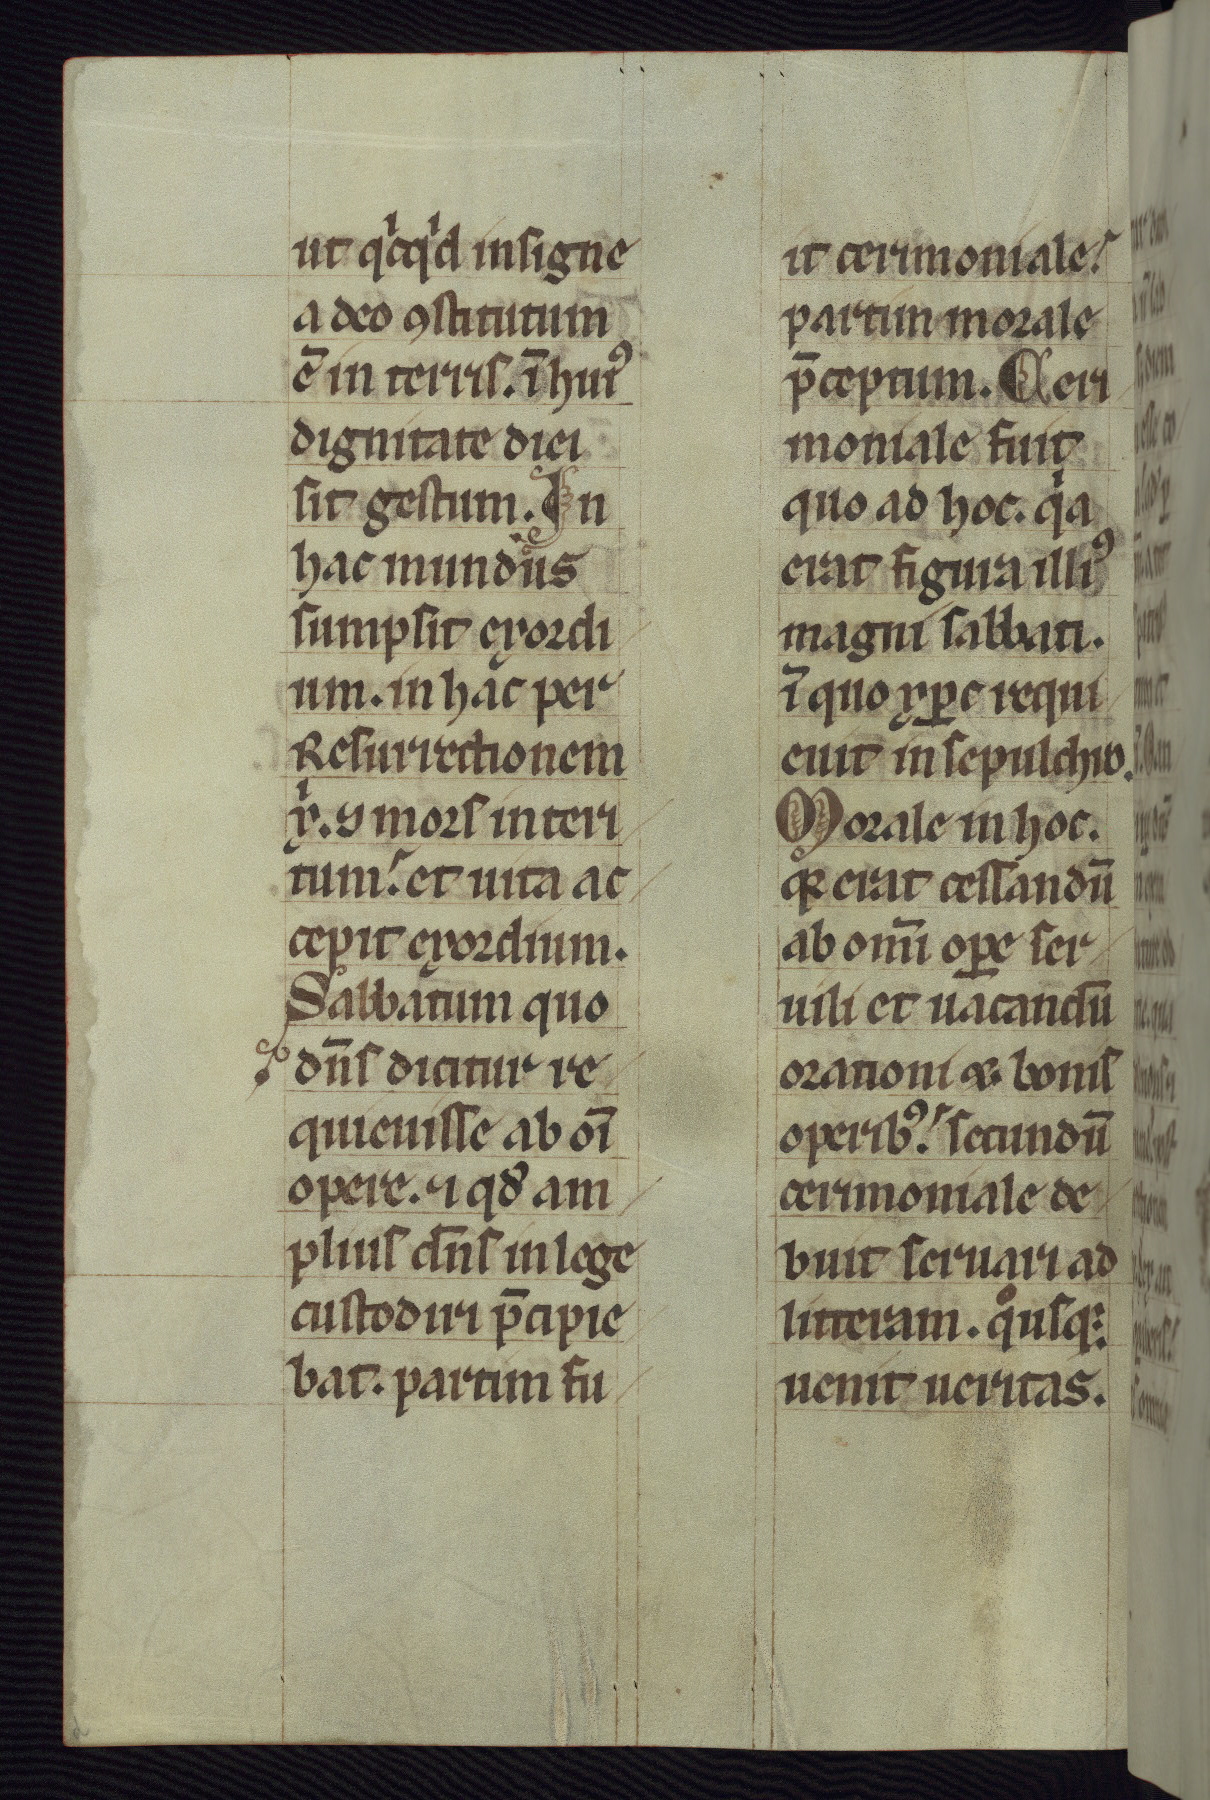 ut qͥcqͥd insigne
a deo ꝯstitutum
ē in terris. ī huiꝰ
dignitate diei
sit gestum. In
hac mundus
sumpsit exordi
um. in hac per
Resurrectionem
xͥ. ⁊ mors interi
tum. et uita ac
cepit exordium.
Sabbatum quo
dn̄s dicitur re
quieuisse ab oī
opere. ⁊ qd̕ am
plius dn̄s in lege
custodiri p̄cipie
bat. partim fu
it cerimoniale.
partim morale
p̄ceptum. Ceri
moniale fuit
quo ad hoc. qͥa
erat figura illiꝰ
magni sabbati.
ī quo xp̄c requi
euit in sepulchro.
Morale in hoc.
qꝛ erat cessandū
ab omī oꝑe ser
uili et uacandū
orationi & bonis
operibꝰ. secundū
cerimoniale de
buit seruari ad
litteram. qͦusqꝫ
uenit ueritas.